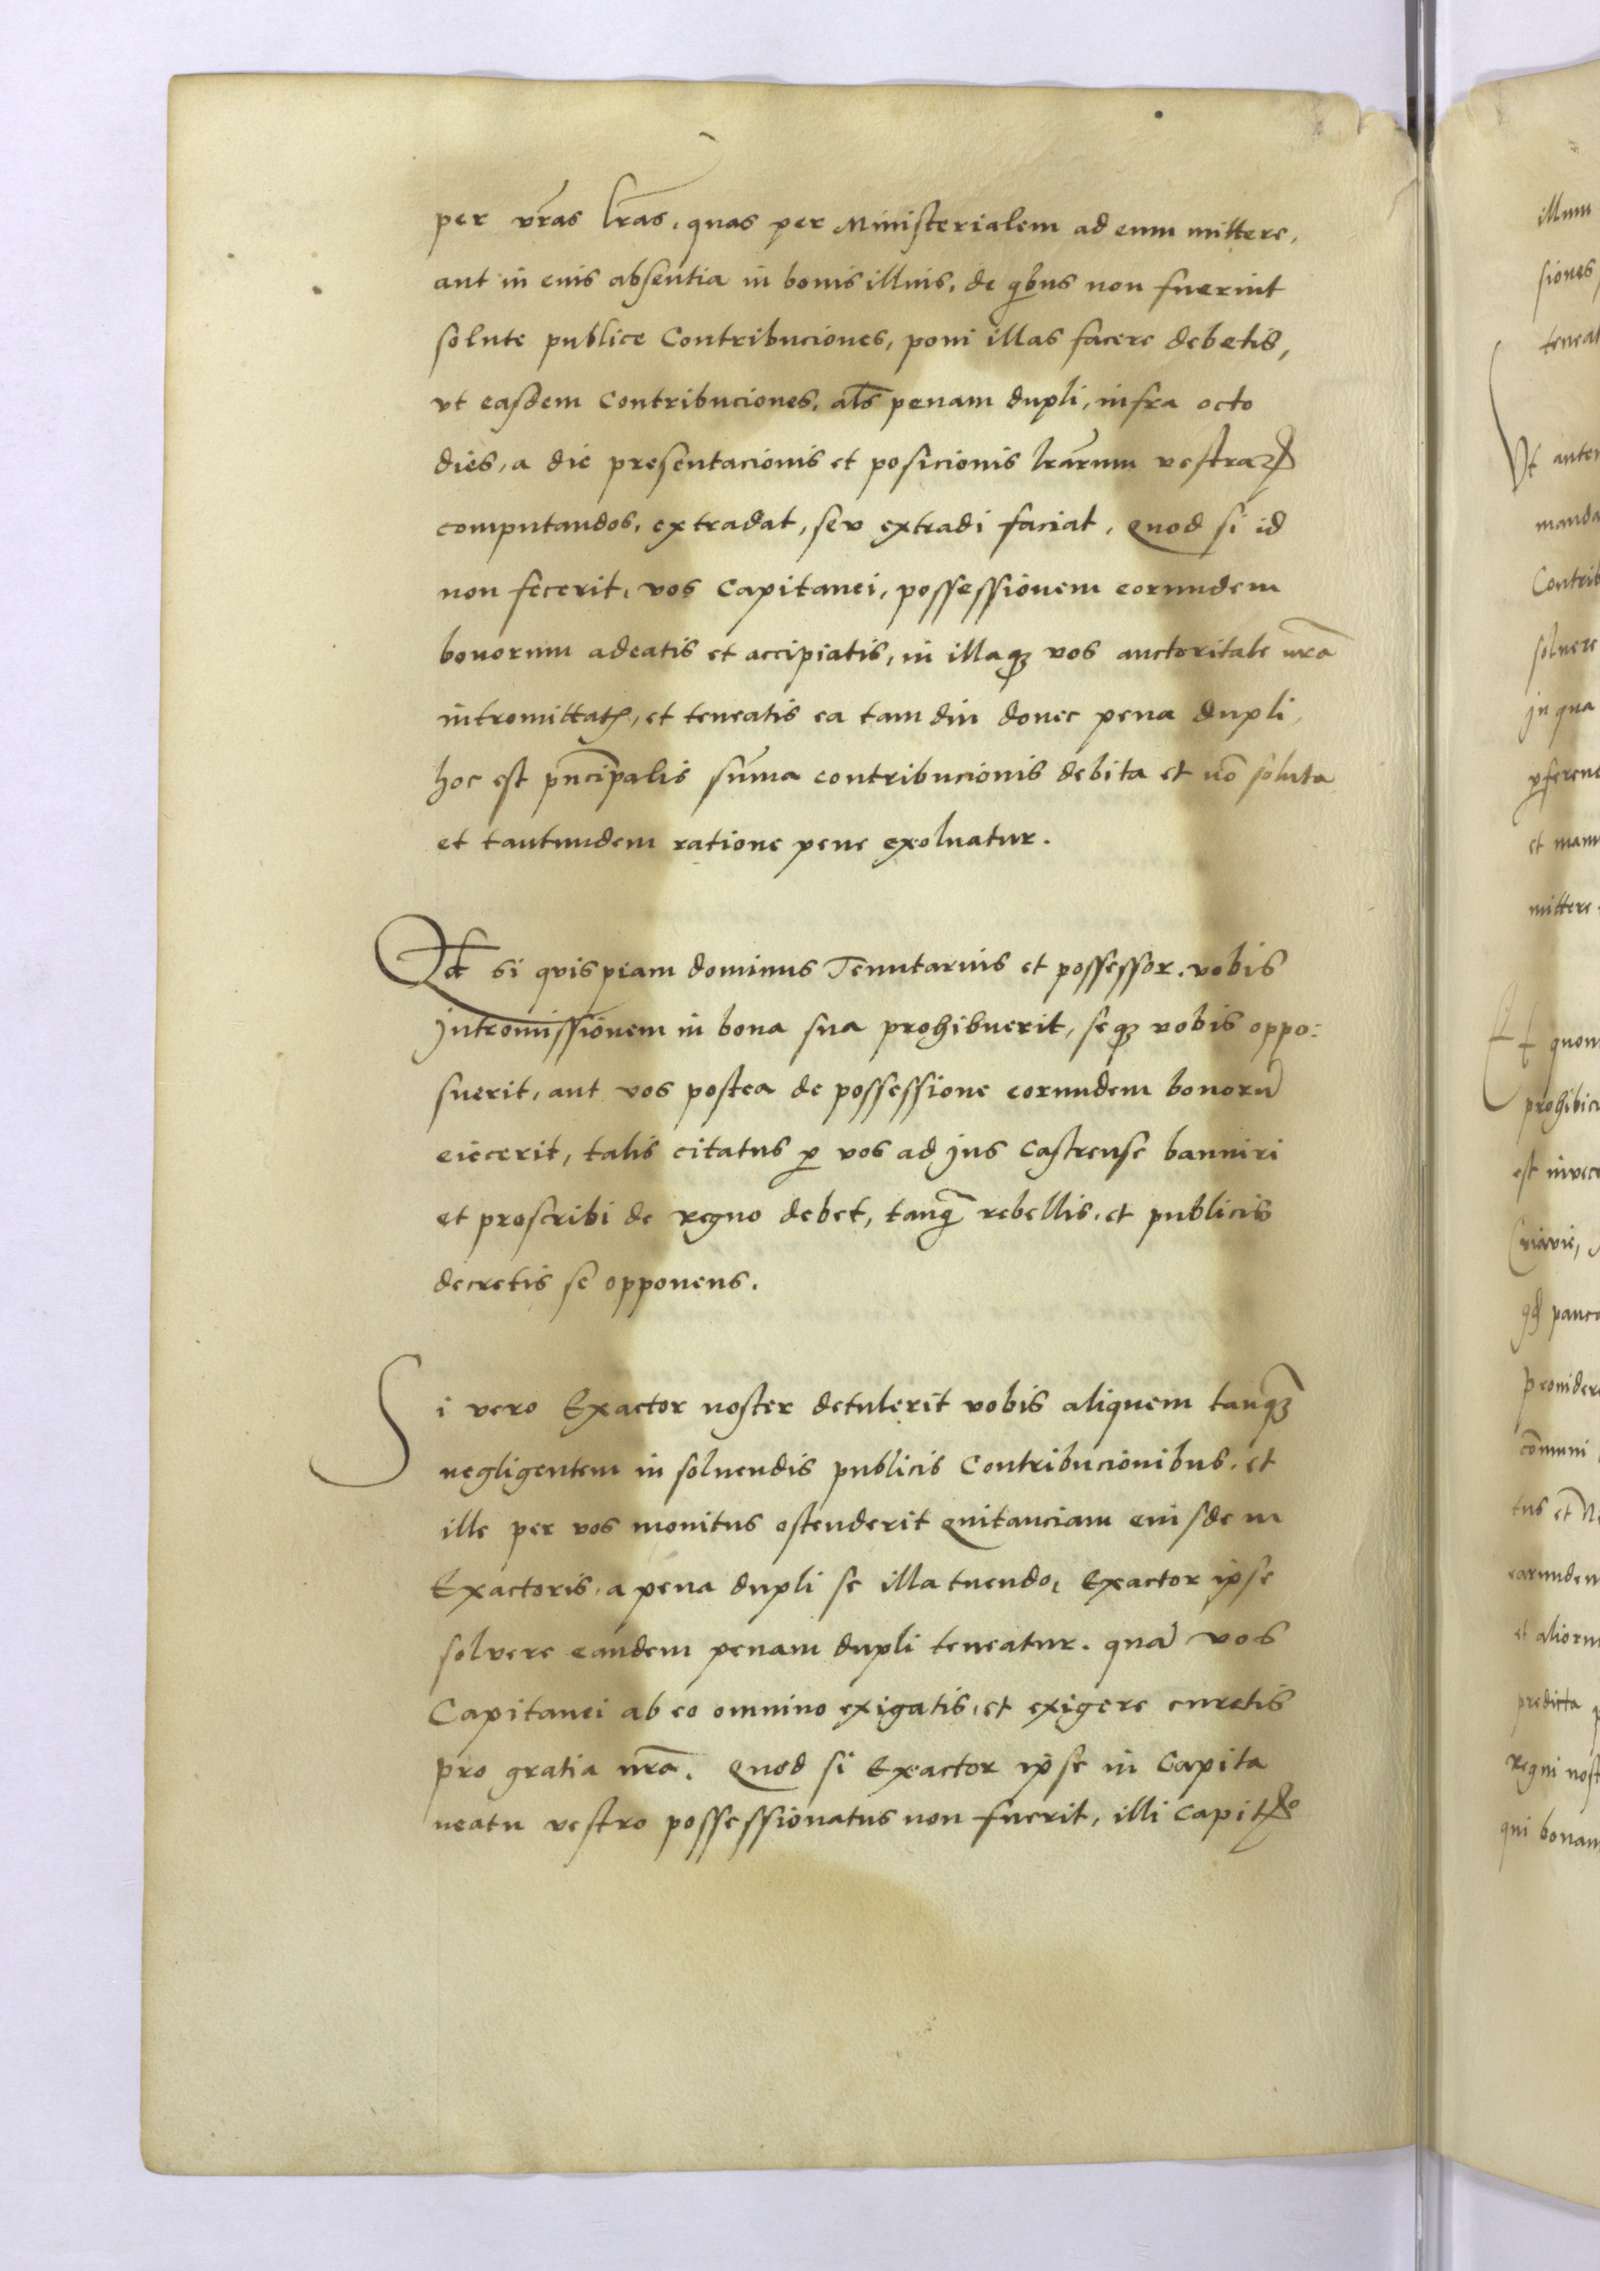 per vr̃as lr̃as, quas per Ministerialem ad eum mittere,
aut in eius absentia in bonis illius, de qͥbus non fuerint
solute publice Contribuciones, poni illas facere debetis,
vt easdem Contribuciones, al̃s penam dupli, infra octo
dies, a die presentacionis et posicionis lr̃arum vestraꝝ
computandos, extradat, sev extradi faciat, Quod si id
non fecerit, vos Capitanei, possessionem eorundem
bonorum adeatis et accipiatis, in illaqꝫ vos auctoritate nr̃a
intromittatꝭ, et teneatis ea tam diu donec pena dupli,
hoc est pñcipalis sum̃a contribucionis debita et nõ soluta
et tantundem ratione pene exoluatur.
Qđ si quispiam dominus Tenutarius et possessor, vobis
Intromissionem in bona sua prohibuerit, seqꝫ vobis oppo:
suerit, aut vos postea de possessione eorundem bonorũ
eiecerit, talis citatus ꝑ vos ad Jus Castrense banniri
et proscribi de regno debet, tanq̃ rebellis, et publicis
decretis se opponens.
Si vero Exactor noster detulerit vobis aliquem tanqꝫ
negligentem in soluendis publicis Contribucionibus, et
ille per vos monitus ostenderit Quitanciam eiusdem
Exactoris, a pena dupli se illa tuendo, Exactor ipse
solvere eandem penam dupli teneatur. quã vos
Capitanei ab eo omnino exigatis, et exigere curetis
pro gratia nr̃a. Quod si Exactor ipse in Capita
neatu vestro possessionatus non fuerit, illi Capitꝫo
illum
siones
teneat
Vt autem
manda
Contrib
soluere
Jn qua
ꝑferend
et manu
mittere
Et quon
prohibic
est invec
communi
tus et N
earunden
et aliorum
predicta p
Regni nost
qui bonam